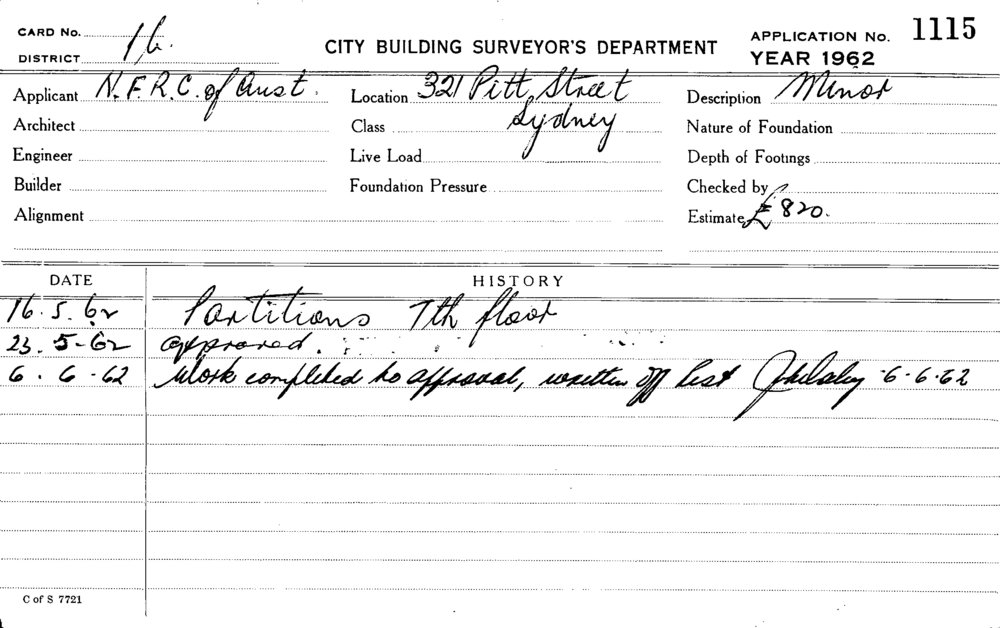 CARD No.
DISTRICT 16.
CITY BUILDING SURVEYOR'S DEPARTMENT
APPLICATION No. 1115
YEAR 1962
Applicant N.F.R.C. of Aust.
Location 321 Pitt Street
Sydney
Description Minor
Architect
Class
Nature of Foundation
Engineer
Live Load
Depth of Footings
Builder
Foundation Pressure
Checked by
Alignment
Estimate £820.
DATE HISTORY
16.5.62 Partitions 7th floor
23.5-62 approved.
6.6.62 Work completed to approval, written off list 6.6.62
C of S 7721